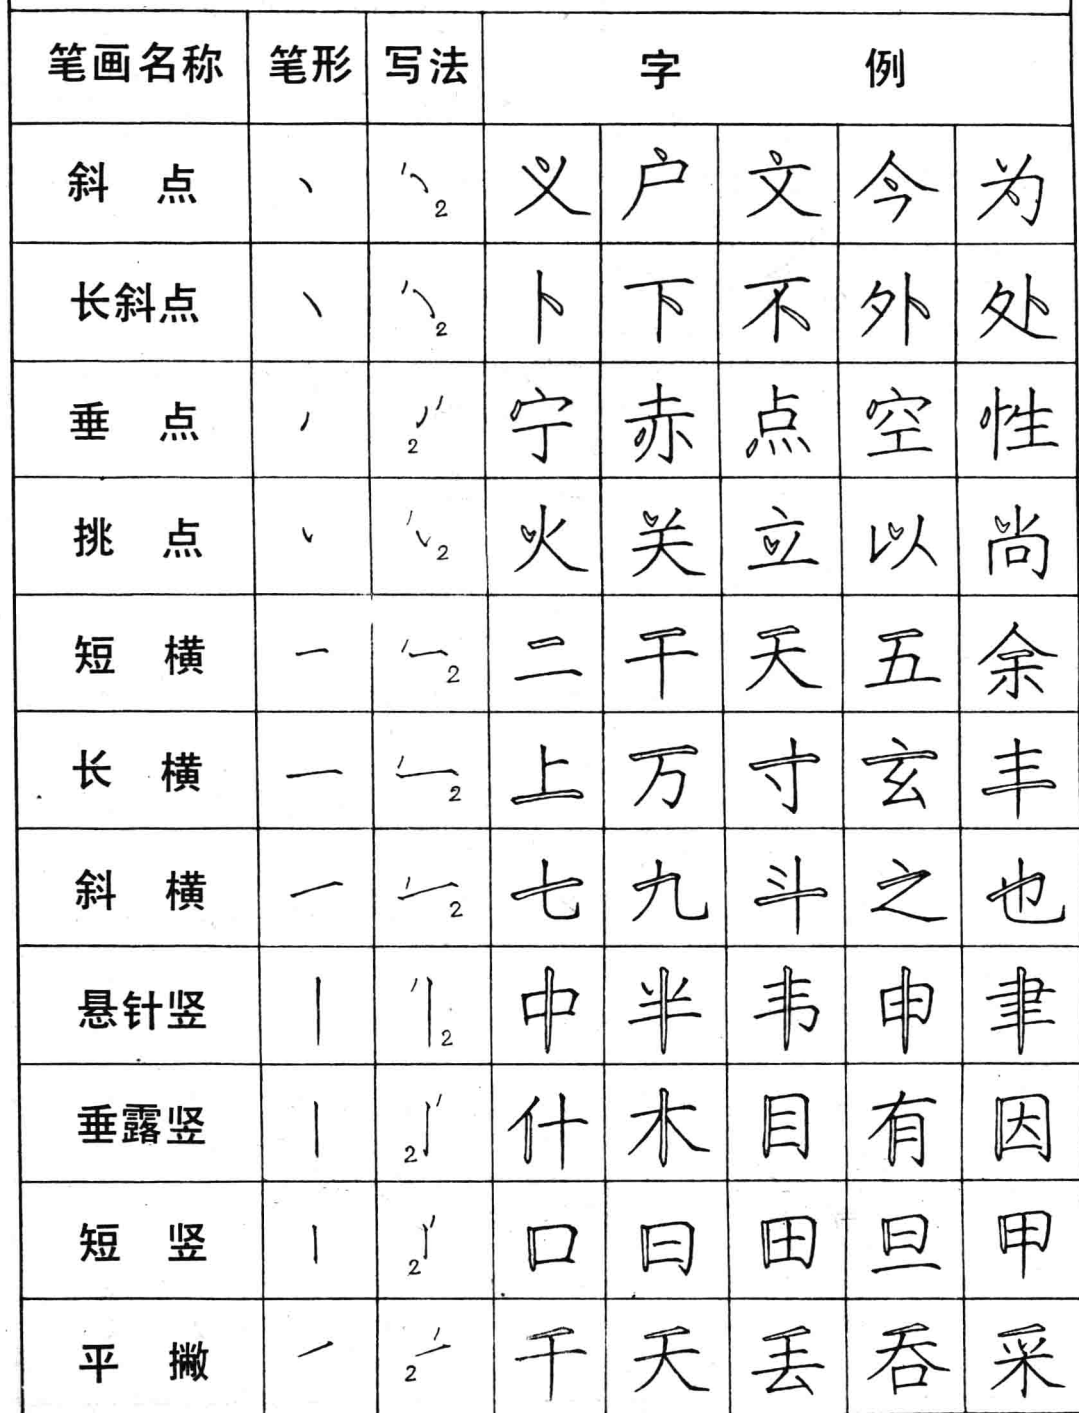 笔画名称 笔形 写法 字 例
斜 点 丶 1 2 义 户 文 今 为
长斜点 ㇔ 1 2 卜 下 不 外 处
垂 点 1 2 宁 赤 点 空 性
挑 点 1 2 火 关 立 以 尚
短 横 一 1 2 二 干 天 五 余
长 横 一 1 2 上 万 寸 玄 丰
斜 横 一 1 2 七 九 斗 之 也
悬针竖 丨 1 2 中 半 韦 申 聿
垂露竖 丨 1 2 什 木 目 有 因
短 竖 丨 1 2 口 曰 田 旦 甲
平 撇 ㇒ 1 2 千 夭 丢 吞 采